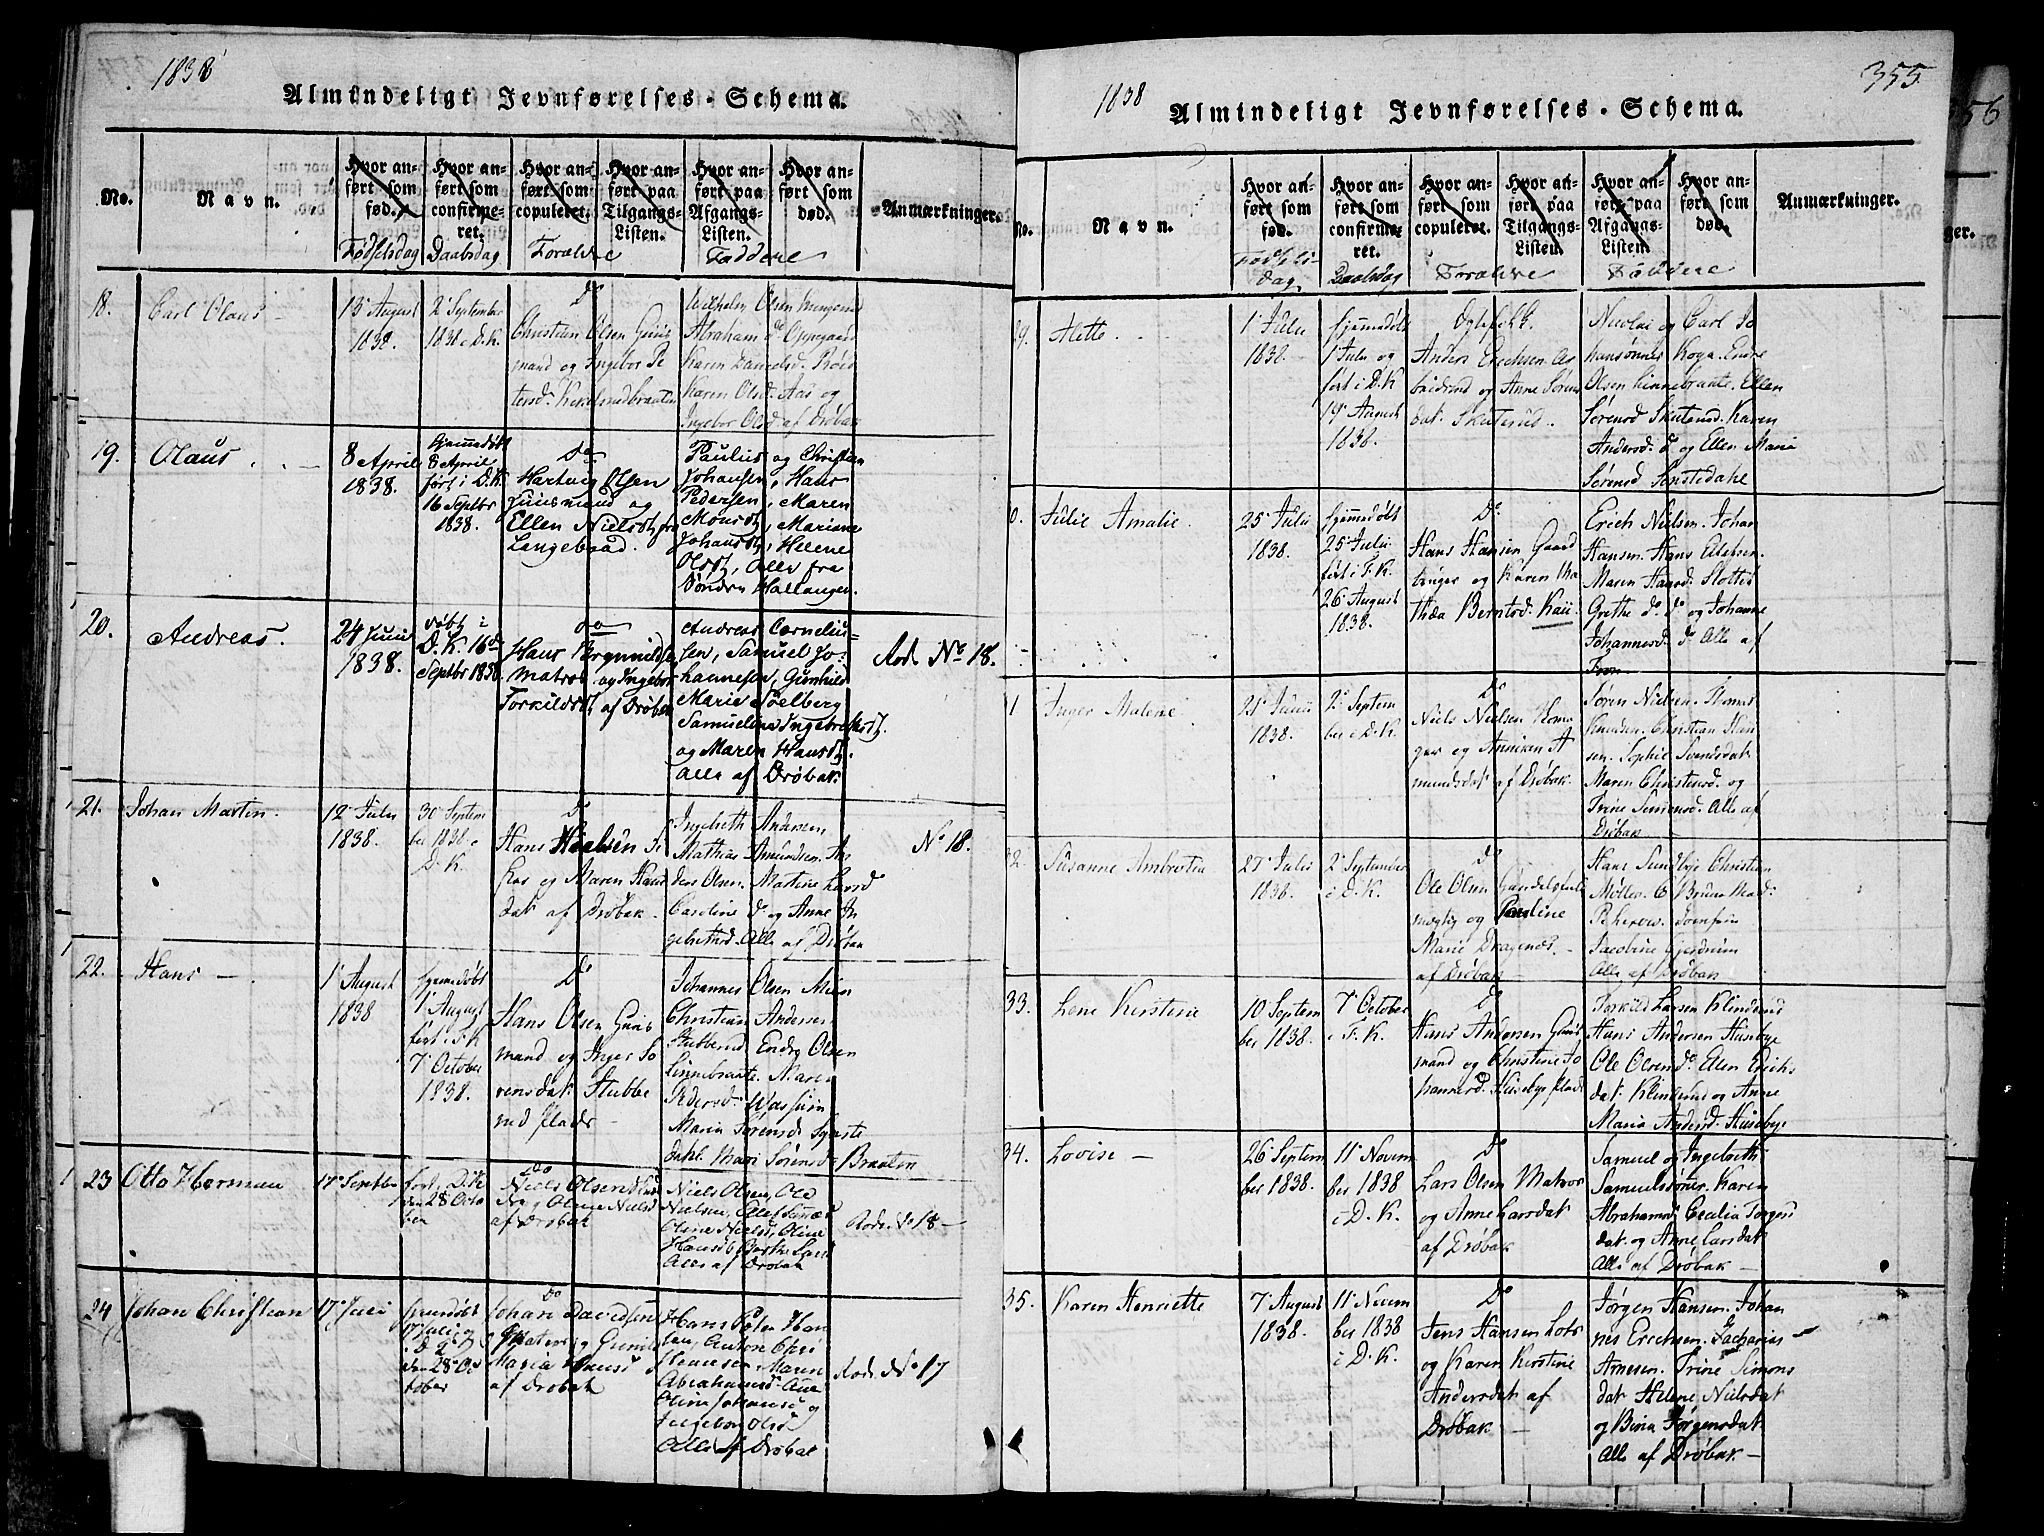 1838
Almindeligt Jevnførelses-Schema.
No.
Navn.
Hvor an-
ført som
fød.
Hvor an-
ført som
confirme-
ret.
Hvor an-
ført som
copuleret.
Hvor an-
ført paa
Tilgangs-
Listen.
Hvor an-
ført paa
Afgangs-
Listen.
Hvor an-
ført som
død.
Anmærkninger.
Fødselsdag
Daabsdag
Forældre
Faddere
18.
Carl Olaus
13 August
1838.
2 September
1838 i D.K.
Do
Christian Olsen
mand og Ingebor Pe
tersd.
Wilhelm Olsen
Abraham do Oppegaard
Karen
Karen Olsd. Aas og
Ingebor Olsd af Drøbak
19.
Olaus
8 April
1838.
hjemmedøbt
8 April
ført i D.K.
16 Septbr
1838.
Do
Hartvig Olsen
Huusmand og
Ellen Nielsdtr fra
Langebraad.
Paulus og Christian
Johansen, Hans
Pedersen, Maren
Monsdtr, Mariane
Johansdtr, Helene
Olsdtr, Alle fra
Søndre Hallangen.
20.
Andreas.
24 Juni
1838.
døbt i
D.K. 16de
Septbr 1838.
do
Hans
Matros og Ingebor
Torkildsdtr af Drøbak
Andreas Cornelius-
sen, Samuel Jo-
hannesen, Gunhild
Marie Soelberg
Samueline Ingebretsdtr.
og Maren Hansdtr.
Alle af Drøbak
Rode No 18.
21.
Johan Martin.
12 Julii
1838.
30 Septem
ber 1838 i
D.K.
Do
Hans Nielsen
og Maren Hans
dat af Drøbak.
Ingebreth Andersen
Mathias Amundsen. An
ders Olsen. Martine Larsd
Caroline do og Anne In
gebrethsd. Alle af Drøbak
No 18.
22.
Hans
1 August
1838
hjemmedøbt
1 August
ført i F.K
7 October
1838.
Do
Hans Olsen Huus
mand og Inger Sø
rensdat. Stubbe
rud Plads
Johannes Olsen
Christian Andersen
Stubberud Endre Olsen
Linnebraate. Maren
Pedersd.
Maria Sørensd.
dahl. Mari Sørensd. Braaten
23
Otto Herman
17 Septbr
ført i D.K
den 28 Octo
ber
Do
Niels Olsen
og Oline Nielsd
af Drøbak
Niels Olsen, Ole
Nielsen,
Oline Nielsd, Oline
Hansd, Berthe Larsd
Alle af Drøbak
Rode No 18
24
Johan Christian
17 Juli
hjemmedøbt
17 Juli og
i D K
den 28 Oc
tober
Do
Johan Davidsen
Matros og Gunild
Maria Hansd
af Drøbak
Hans Peter Han
sen, Anton Chri
stensen, Maren
Abrahamsd. Ane
Oline Johansd og
Ingebor Olsd
Alle af Drøbak
Rode No 17
1838
355
Almindeligt Jevnførelses-Schema.
No.
Navn.
Hvor an-
ført som
fød.
Hvor an-
ført som
confirme-
ret.
Hvor an-
ført som
copuleret.
Hvor an-
ført paa
Tilgangs-
Listen.
Hvor an-
ført paa
Afgangs-
Listen.
Hvor an-
ført som
død.
Anmærkninger.
Fødsels-
dag
Daabsdag
Forældre
Faddere
29.
Mette
1 Julii
1838
hjemmedøbt
1 Julii og
ført i D.K
19 August
1838.
Ægtefolk.
Anders Erichsen Ar
beidsmd og Anne Sørens
dat. Skuterud.
Nicolai og Carl Jo
hansønner Koga. Endre
Olsen Linnebraate. Ellen
Sørensd Skuterud. Karen
Andersd. do og Ellen Marie
Sørensd
0.
Julie Amalie.
25 Julii
1838.
hjemmedøbt
25 Julii
ført i F.K.
26 August
1838.
Do
Hans Hansen Gaard
bruger og Karen Ma
thea Berntsd.
Erich Nielsen. Johan
Hansen. Hans
Maren Hansd.
Grethe do. do og Johanne
Johannesd. do Alle af
Fron
1
Inger Malene
21 Junii
1838.
2 Septem
ber i D.K.
Do
Niels Nielsen
og Anniken A
mundsdat af Drøbak.
Søren Nielsen. Thomas
Knudsen. Christian Han
sen. Sophie Svendsdat.
Maren Christensd. og
Trine Simensd. Alle af
Drøbak
32.
Susanne Ambrosia
27 Julii
1838.
2 September
i D.K.
Do
Ole Olsen
og Pauline
Marie Dragenæs
af Drøbak
Hans Sundbye Christian
Møller. C Bruun Mad:
Jacobine Gjerdrum
Alle af Drøbak
33.
Lene Kirstine
10 Septem
ber 1838.
7 October
i F.K.
Do
Hans Andersen Huus
mand og Christine Jo
hannesd. Husebye Plads
Torkild Larsen Klinderud
Hans Andersen Husebye
Ole Olsen do. Ellen Erichs
dat. Klinderud og Anne
Maria Andersd. Husebye
34.
Lovise
26 Septem
ber 1838.
11 Novem
ber 1838
i D.K.
Do
Lars Olsen Matros
og Anne Larsdat
af Drøbak
Samuel og Ingebreth
Samuelsønner. Karen
Abrahamsd Cecilia Torgers
dat. og Anne Larsdat
Alle af Drøbak
35.
Karen Henriette
7 August
1838.
11 Novem
ber 1838
i D.K.
Do
Jens Hansen Lods
og Karen Kirstine
Andersdat af
Drøbak
Jørgen Hansen. Johan
nes Erichsen. Zacharias
Arnesen. Trine Simons
dat Helene Nielsdat
og Bina Jørgensdat
Alle af Drøbak